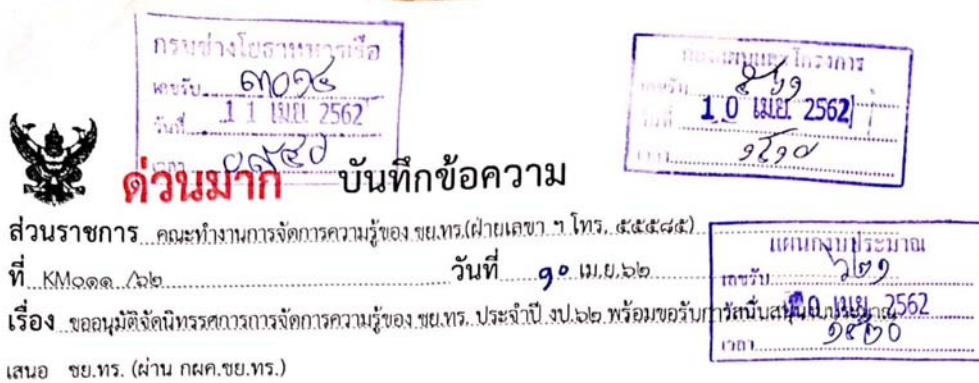 กรมช่างโยธาทหารเรือ
เลขรับ ๓๐๑๔
วันที่ 11 เม.ย. 2562
เวลา
กองแผนและโครงการ
เลขรับ
วันที่ 10 เม.ย. 2562
เวลา
ด่วนมาก บันทึกข้อความ
ส่วนราชการ คณะทำงานการจัดการความรู้ของ ชย.ทร.(ฝ่ายเลขา ฯ โทร. ๕๕๕๘๕)
แผนกงบประมาณ
ที่ KM๐๑๑ /๖๒ วันที่ ๑๐ เม.ย.๖๒
เลขรับ ๖๒๑
10 เม.ย. 2562
เรื่อง ขออนุมัติจัดนิทรรศการการจัดการความรู้ของ ชย.ทร. ประจำปี งป.๖๒ พร้อมขอรับการสนับสนุนงบประมาณ
เวลา
เสนอ ชย.ทร. (ผ่าน กผค.ชย.ทร.)